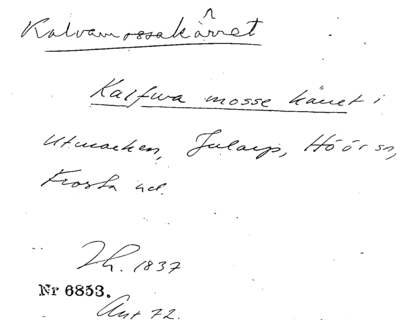 Kalvamossakärret
Kalfwa mosse känet i
Utmarken, Jularp, Höör sn,
Frosta hd.
Lh. 1837
Nr 6853.
Ant 72.